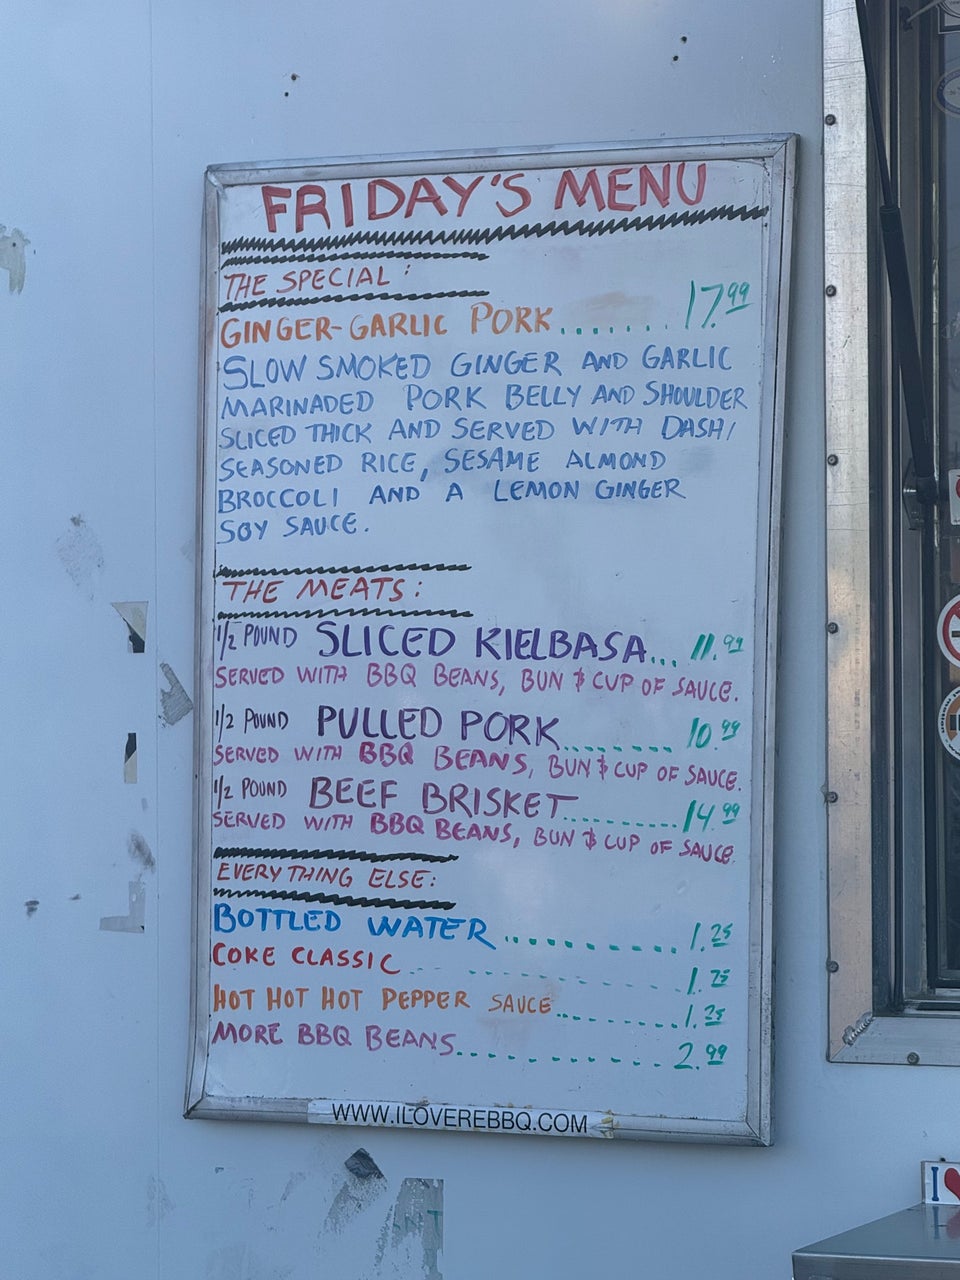 FRIDAY'S MENU
THE SPECIAL:
GINGER-GARLIC PORK....... 17.99
SLOW SMOKED GINGER AND GARLIC
MARINADED PORK BELLY AND SHOULDER
SLICED THICK AND SERVED WITH DASHI
SEASONED RICE, SESAME ALMOND
BROCCOLI AND A LEMON GINGER
SOY SAUCE.
THE MEATS:
1/2 POUND SLICED KIELBASA... 11.99
SERVED WITH BBQ BEANS, BUN & CUP OF SAUCE.
1/2 POUND PULLED PORK........ 10.99
SERVED WITH BBQ BEANS, BUN & CUP OF SAUCE.
1/2 POUND BEEF BRISKET.......... 14.99
SERVED WITH BBQ BEANS, BUN & CUP OF SAUCE.
EVERYTHING ELSE:
BOTTLED WATER............. 1.25
COKE CLASSIC............... 1.25
HOT HOT HOT PEPPER SAUCE.......... 1.25
MORE BBQ BEANS................ 2.99
WWW.ILOVEREBBQ.COM
I